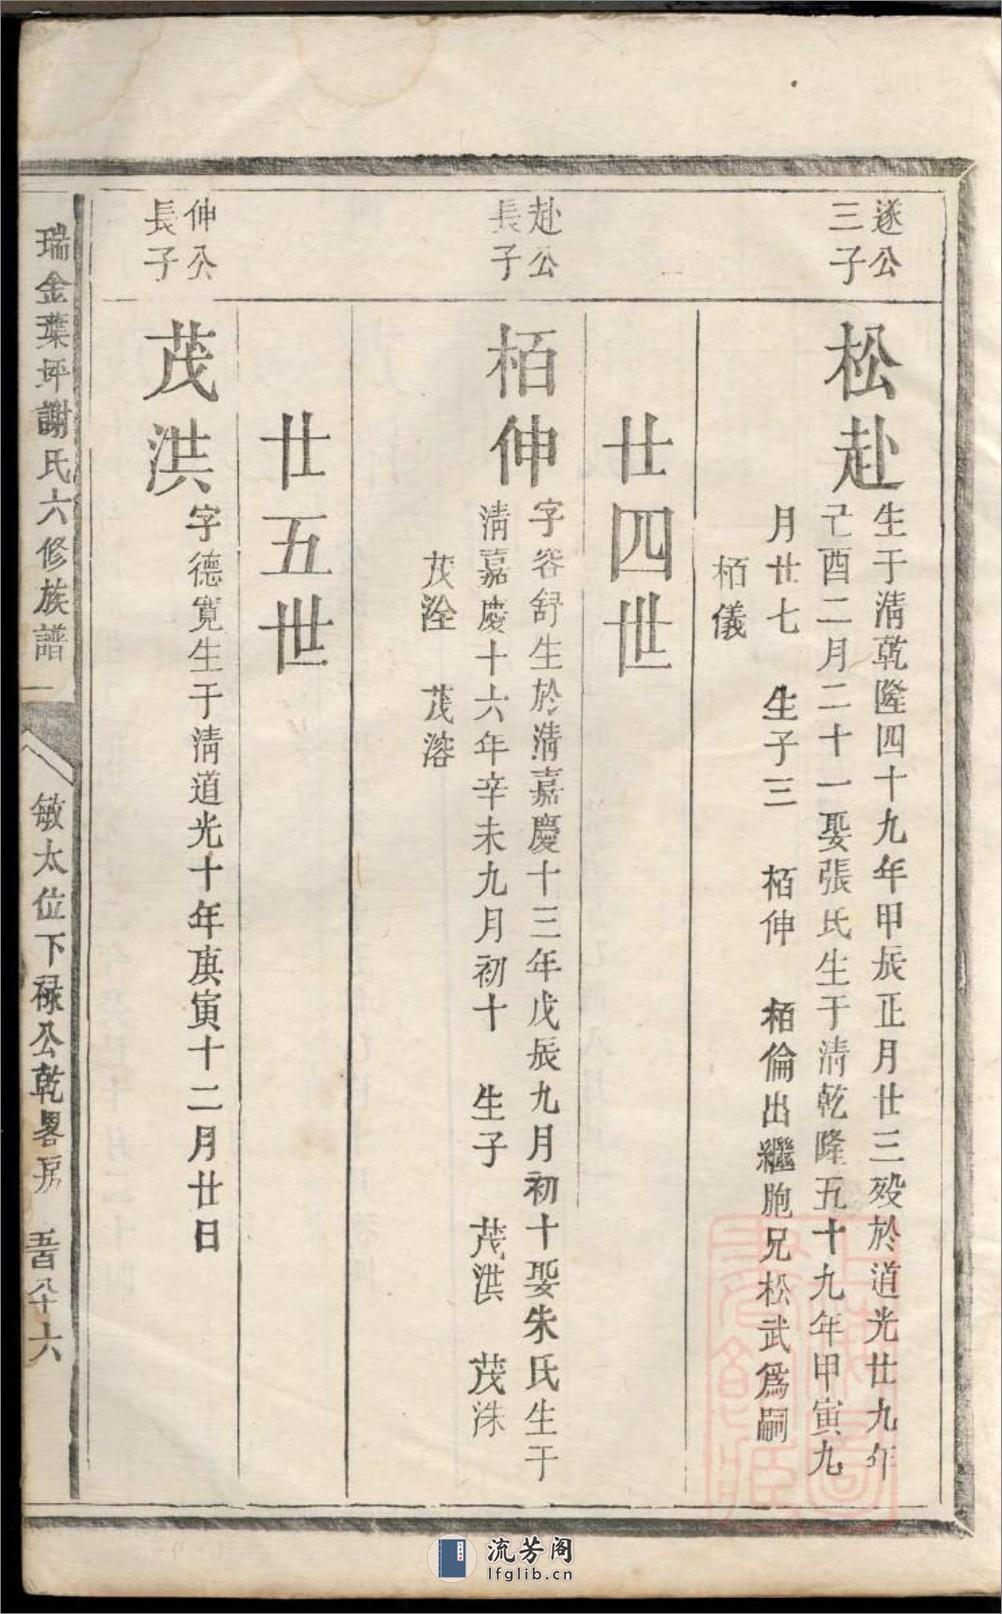 遂公
三子
松赴
生于清乾隆四十九年甲辰正月廿三殁於道光廿九年
己酉二月二十一娶張氏生于清乾隆五十九年甲寅九
月廿七　生子三　栢伸　栢倫出繼胞兄松武爲嗣
栢儀
廿四世
赴公
長子
栢伸
字容舒生於清嘉慶十三年戊辰九月初十娶朱氏生于
清嘉慶十六年辛未九月初十　生子　茂洪　茂洙
茂洤　茂溶
廿五世
伸公
長子
茂洪
字德寬生于清道光十年庚寅十二月廿日
瑞金葉坪謝氏六修族譜
一
敏太位下祿公乾畧房　五百八十六
流芳阁
lfglib.cn